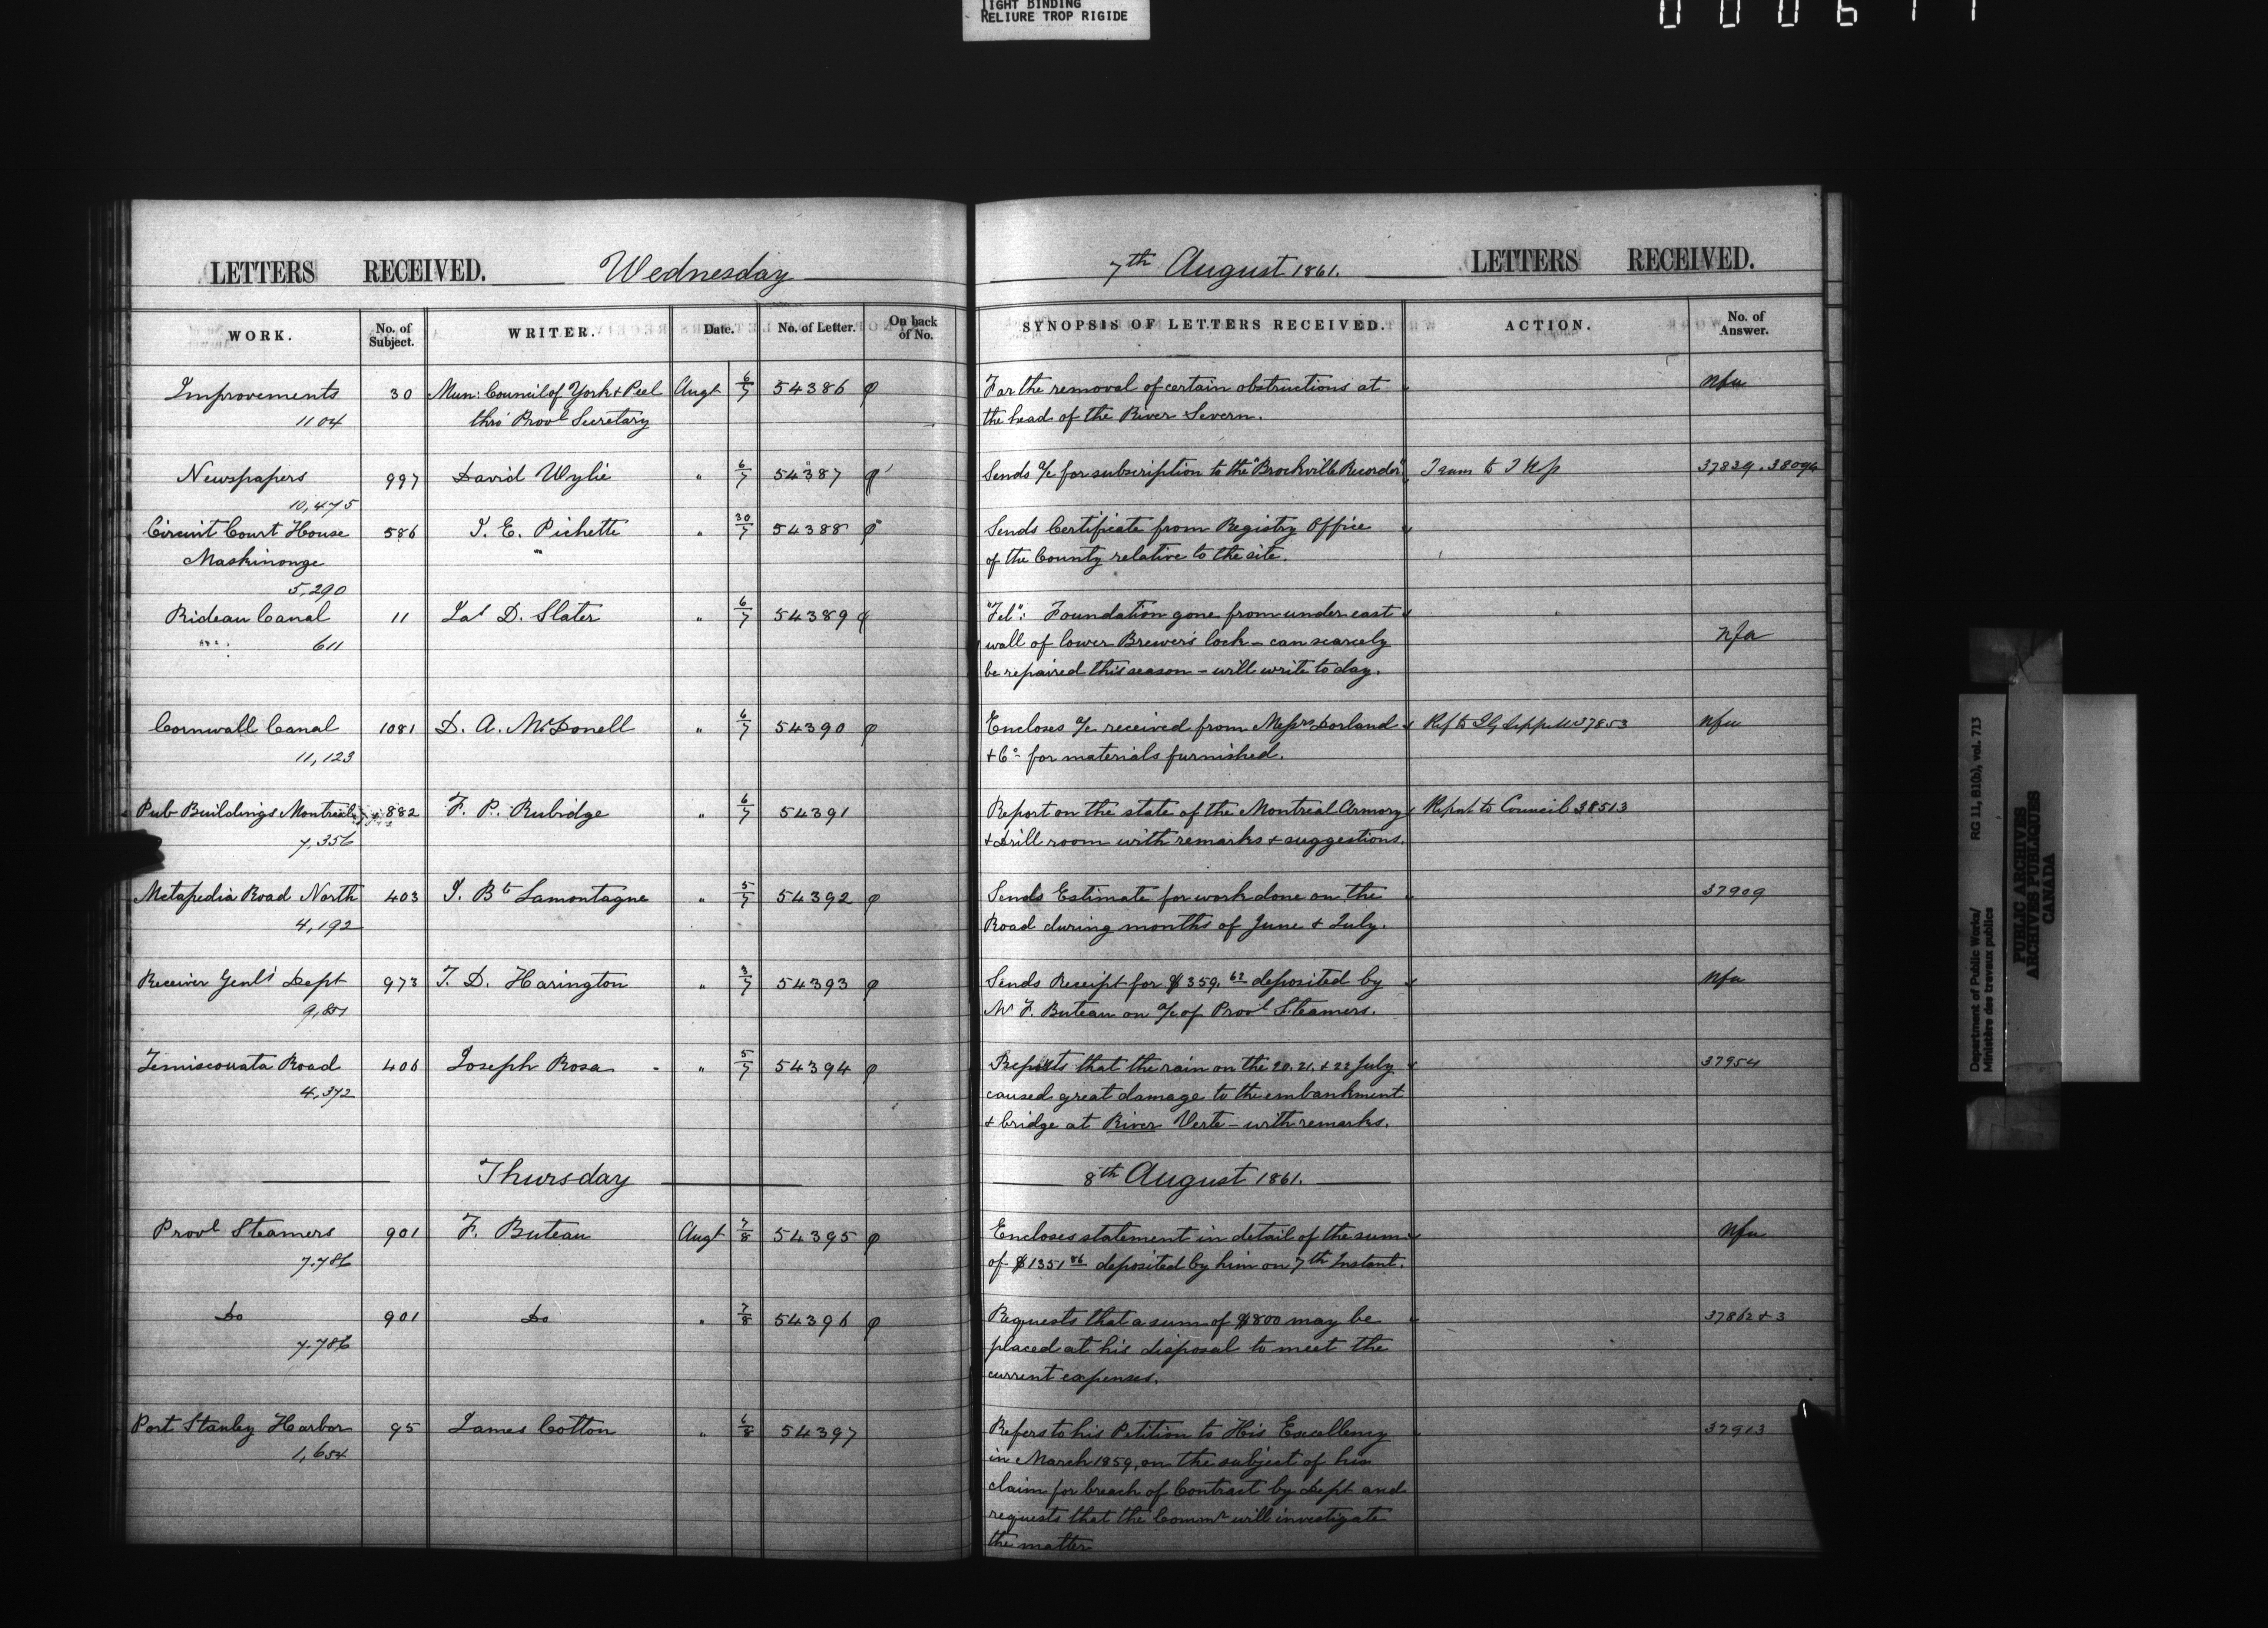 TIGHT BINDING
RELIURE TROP RIGIDE
LETTERS RECEIVED. Wednesday
WORK. No. of Subject. WRITER. Date. No. of Letter. On back of No.
Improvements 30 Mun: Council of York & Peel Augt 6/7 54386
1104 thro' Provl Secretary
Newspapers 997 David Wylie " 6/7 54387
10,475
Circuit Court House 586 J. E. Pichette " 30/7 54388
Maskinonge
5,290
Rideau Canal 11 Jas D. Slater " 6/7 54389
611
Cornwall Canal 1081 D. A. McDonell " 6/7 54390
11,123
Pub Buildings Montreal 882 F. P. Rubidge " 6/7 54391
7,356
Metapedia Road North 403 J. Bte Lamontagne " 5/7 54392
4,192
Receiver Genl's Dept 973 T. D. Harington " 3/7 54393
Temiscouata Road 406 Joseph Rosa " 5/7 54394
4,372
Thursday
Provl Steamers 901 F. Buteau Augt 7/8 54395
7.786
Do 901 Do " 7/8 54396
7.786
Port Stanley Harbor 95 James Cotton " 6/8 54397
1,654
7th August 1861. LETTERS RECEIVED.
SYNOPSIS OF LETTERS RECEIVED. ACTION. No. of Answer.
For the removal of certain obstructions at nfa
the head of the River Severn.
Sends a/c for subscription to the "Brockville Recorder" 37839. 38096
Sends Certificate from Registry Office
of the County relative to the site.
"Tel": Foundation gone from under east
wall of lower Brewers lock – can scarcely nfa
be repaired this season – will write to day.
Encloses a/c received from Messrs Dorland 37853 nfa
& Co for materials furnished.
Report on the state of the Montreal Armory Report to Council 38513
& Drill room with remarks & suggestions.
Sends Estimate for work done on the 37909
Road during months of June & July.
Sends Receipt for $359.62 deposited by nfa
Mr F. Buteau on a/c of Provl Steamers.
Reports that the rain on the 20. 21. & 22 July 37954
caused great damage to the embankment
& bridge at River Verte – with remarks.
8th August 1861.
Encloses statement in detail of the sum nfa
of $1351 86 deposited by him on 7th Instant.
Requests that a sum of $800 may be 37862 & 3
placed at his disposal to meet the
current expenses.
Refers to his Petition to His Excellency 37913
in March 1859, on the subject of his
claim for breach of Contract by Dept and
requests that the Commr will investigate
the matter
Department of Public Works/ RG 11, B1(b), vol. 713
Ministère des travaux publics
PUBLIC ARCHIVES
ARCHIVES PUBLIQUES
CANADA